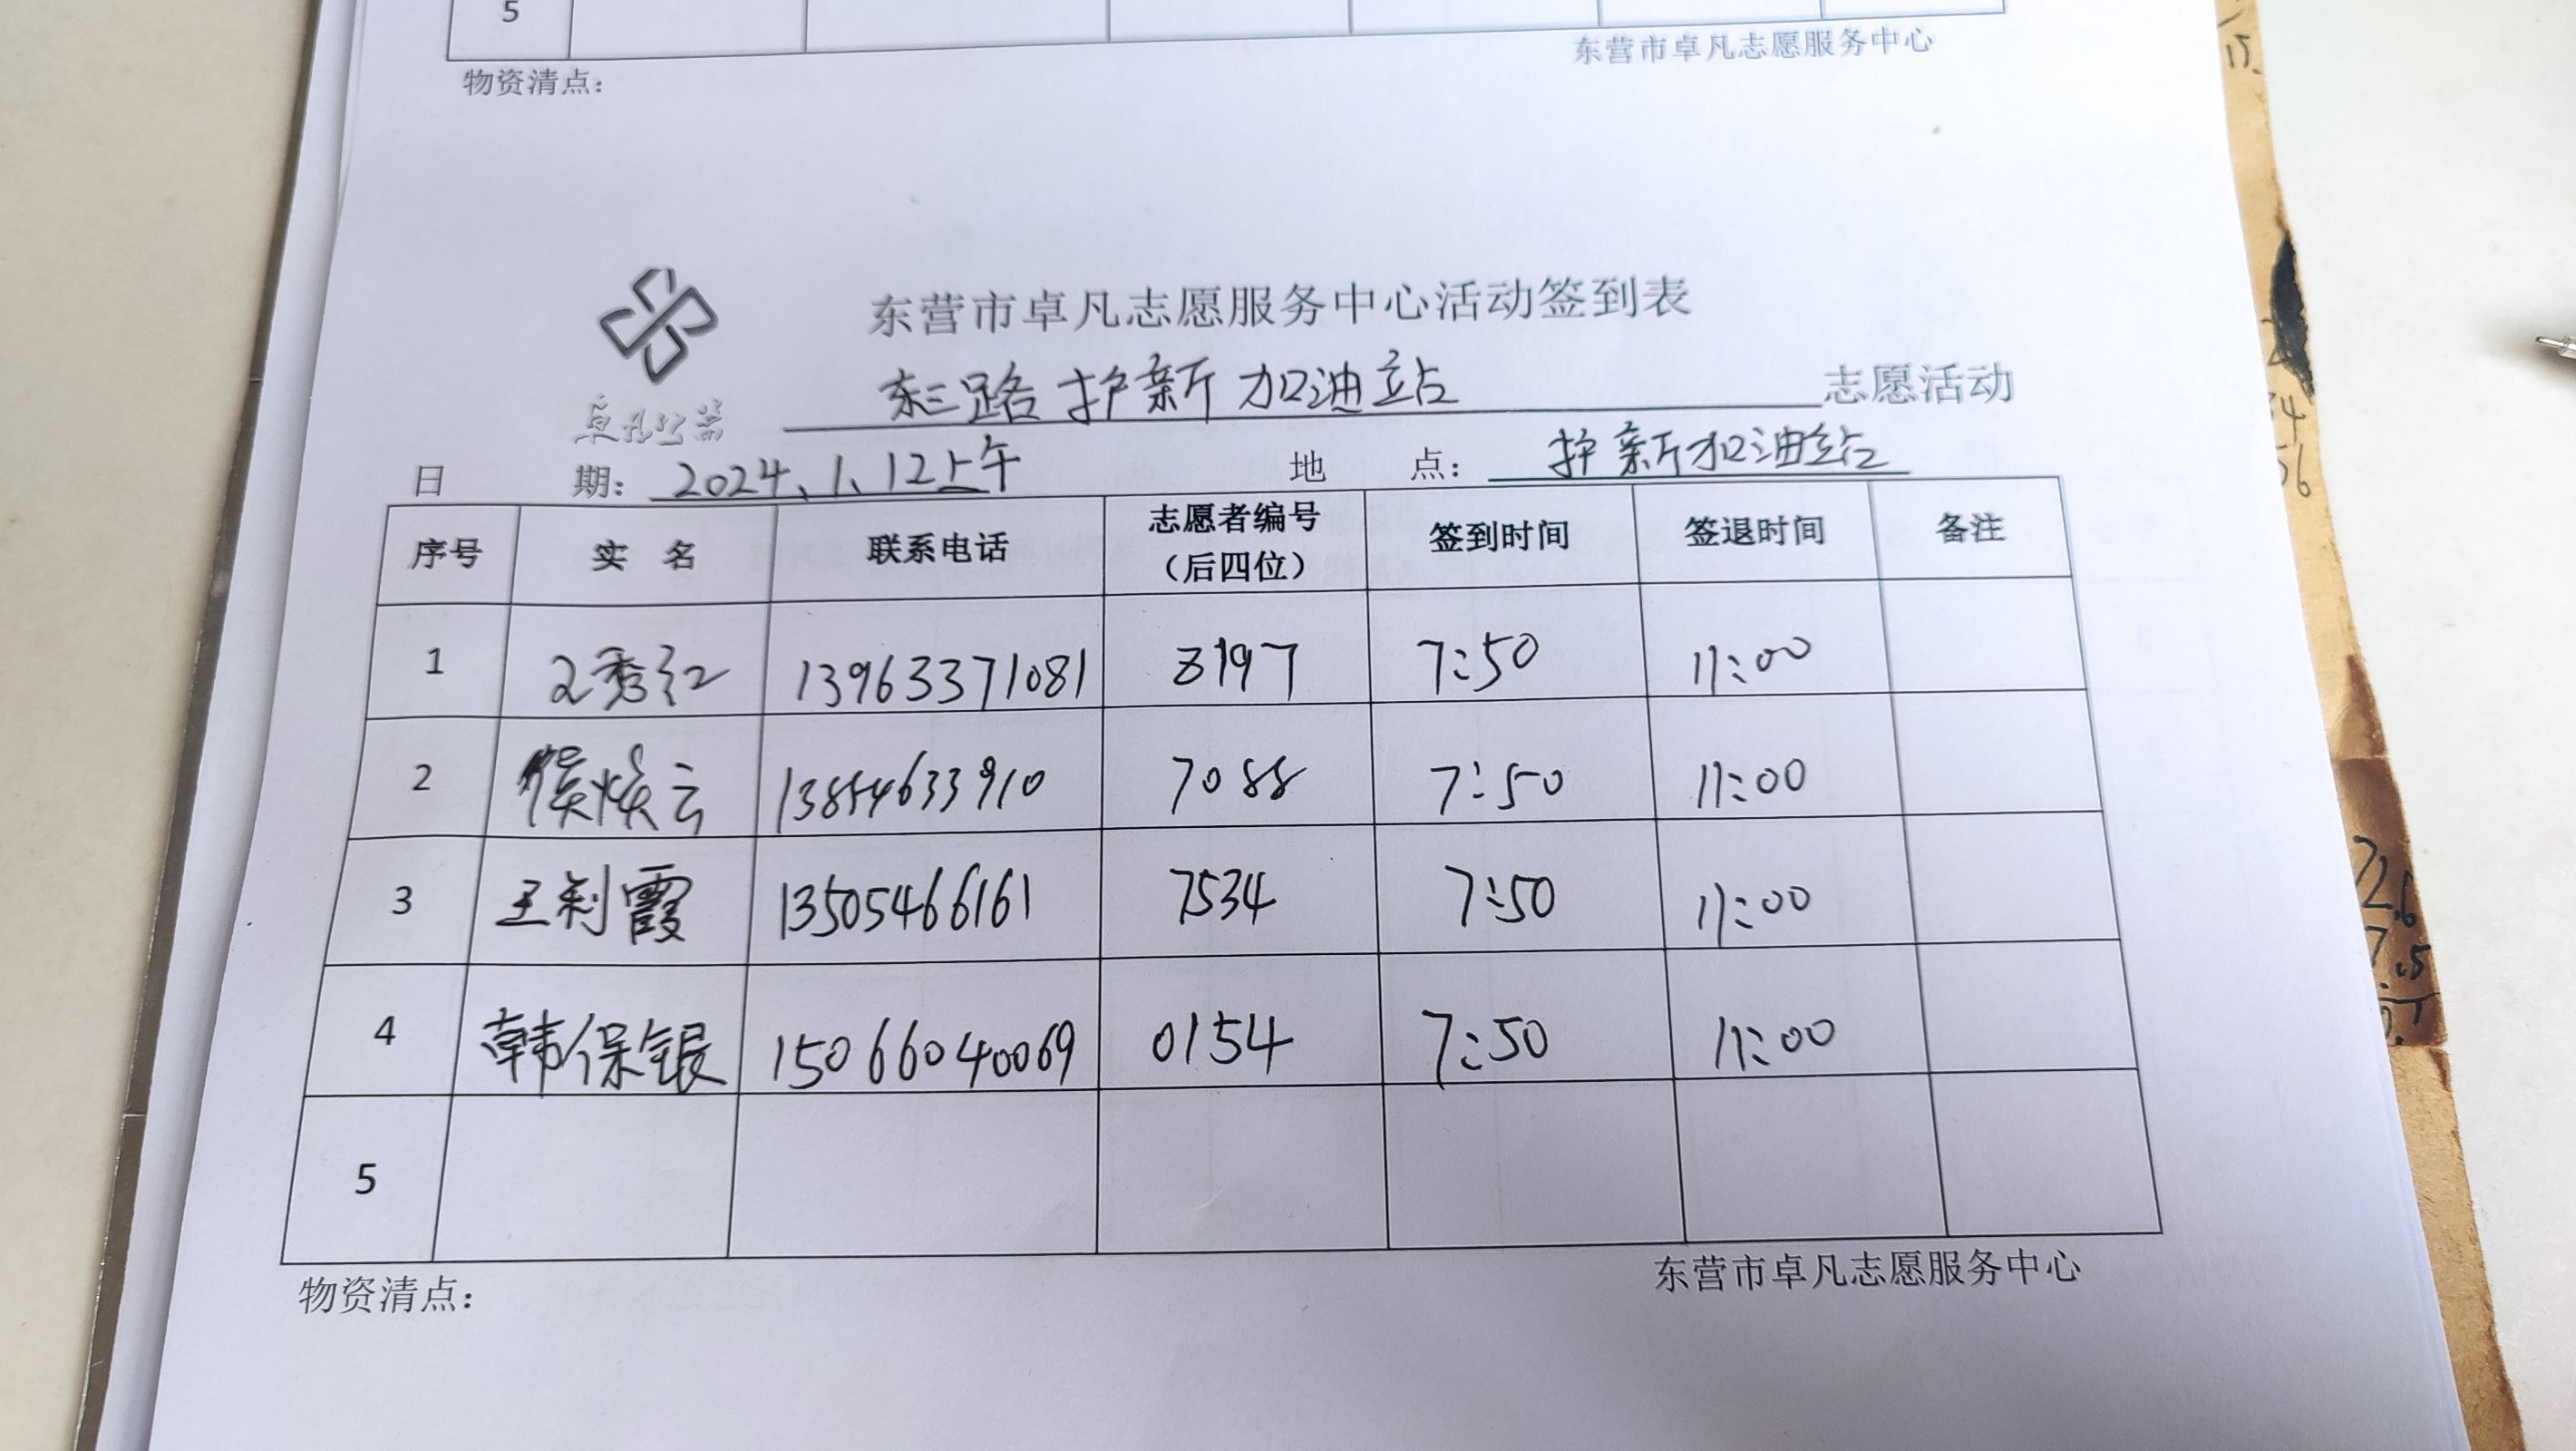 5
东营市卓凡志愿服务中心
物资清点：
东营市卓凡志愿服务中心活动签到表
东三路护新加油站 志愿活动
卓凡公益
日 期： 2024、1、12上午 地 点： 护新加油站
序号 实 名 联系电话 志愿者编号（后四位） 签到时间 签退时间 备注
1 秀红 13963371081 8197 7:50 11:00
2 侯焕云 13854633910 7088 7:50 11:00
3 王利霞 13505466161 7534 7:50 11:00
4 韩保银 15066040069 0154 7:50 11:00
5
物资清点：
东营市卓凡志愿服务中心